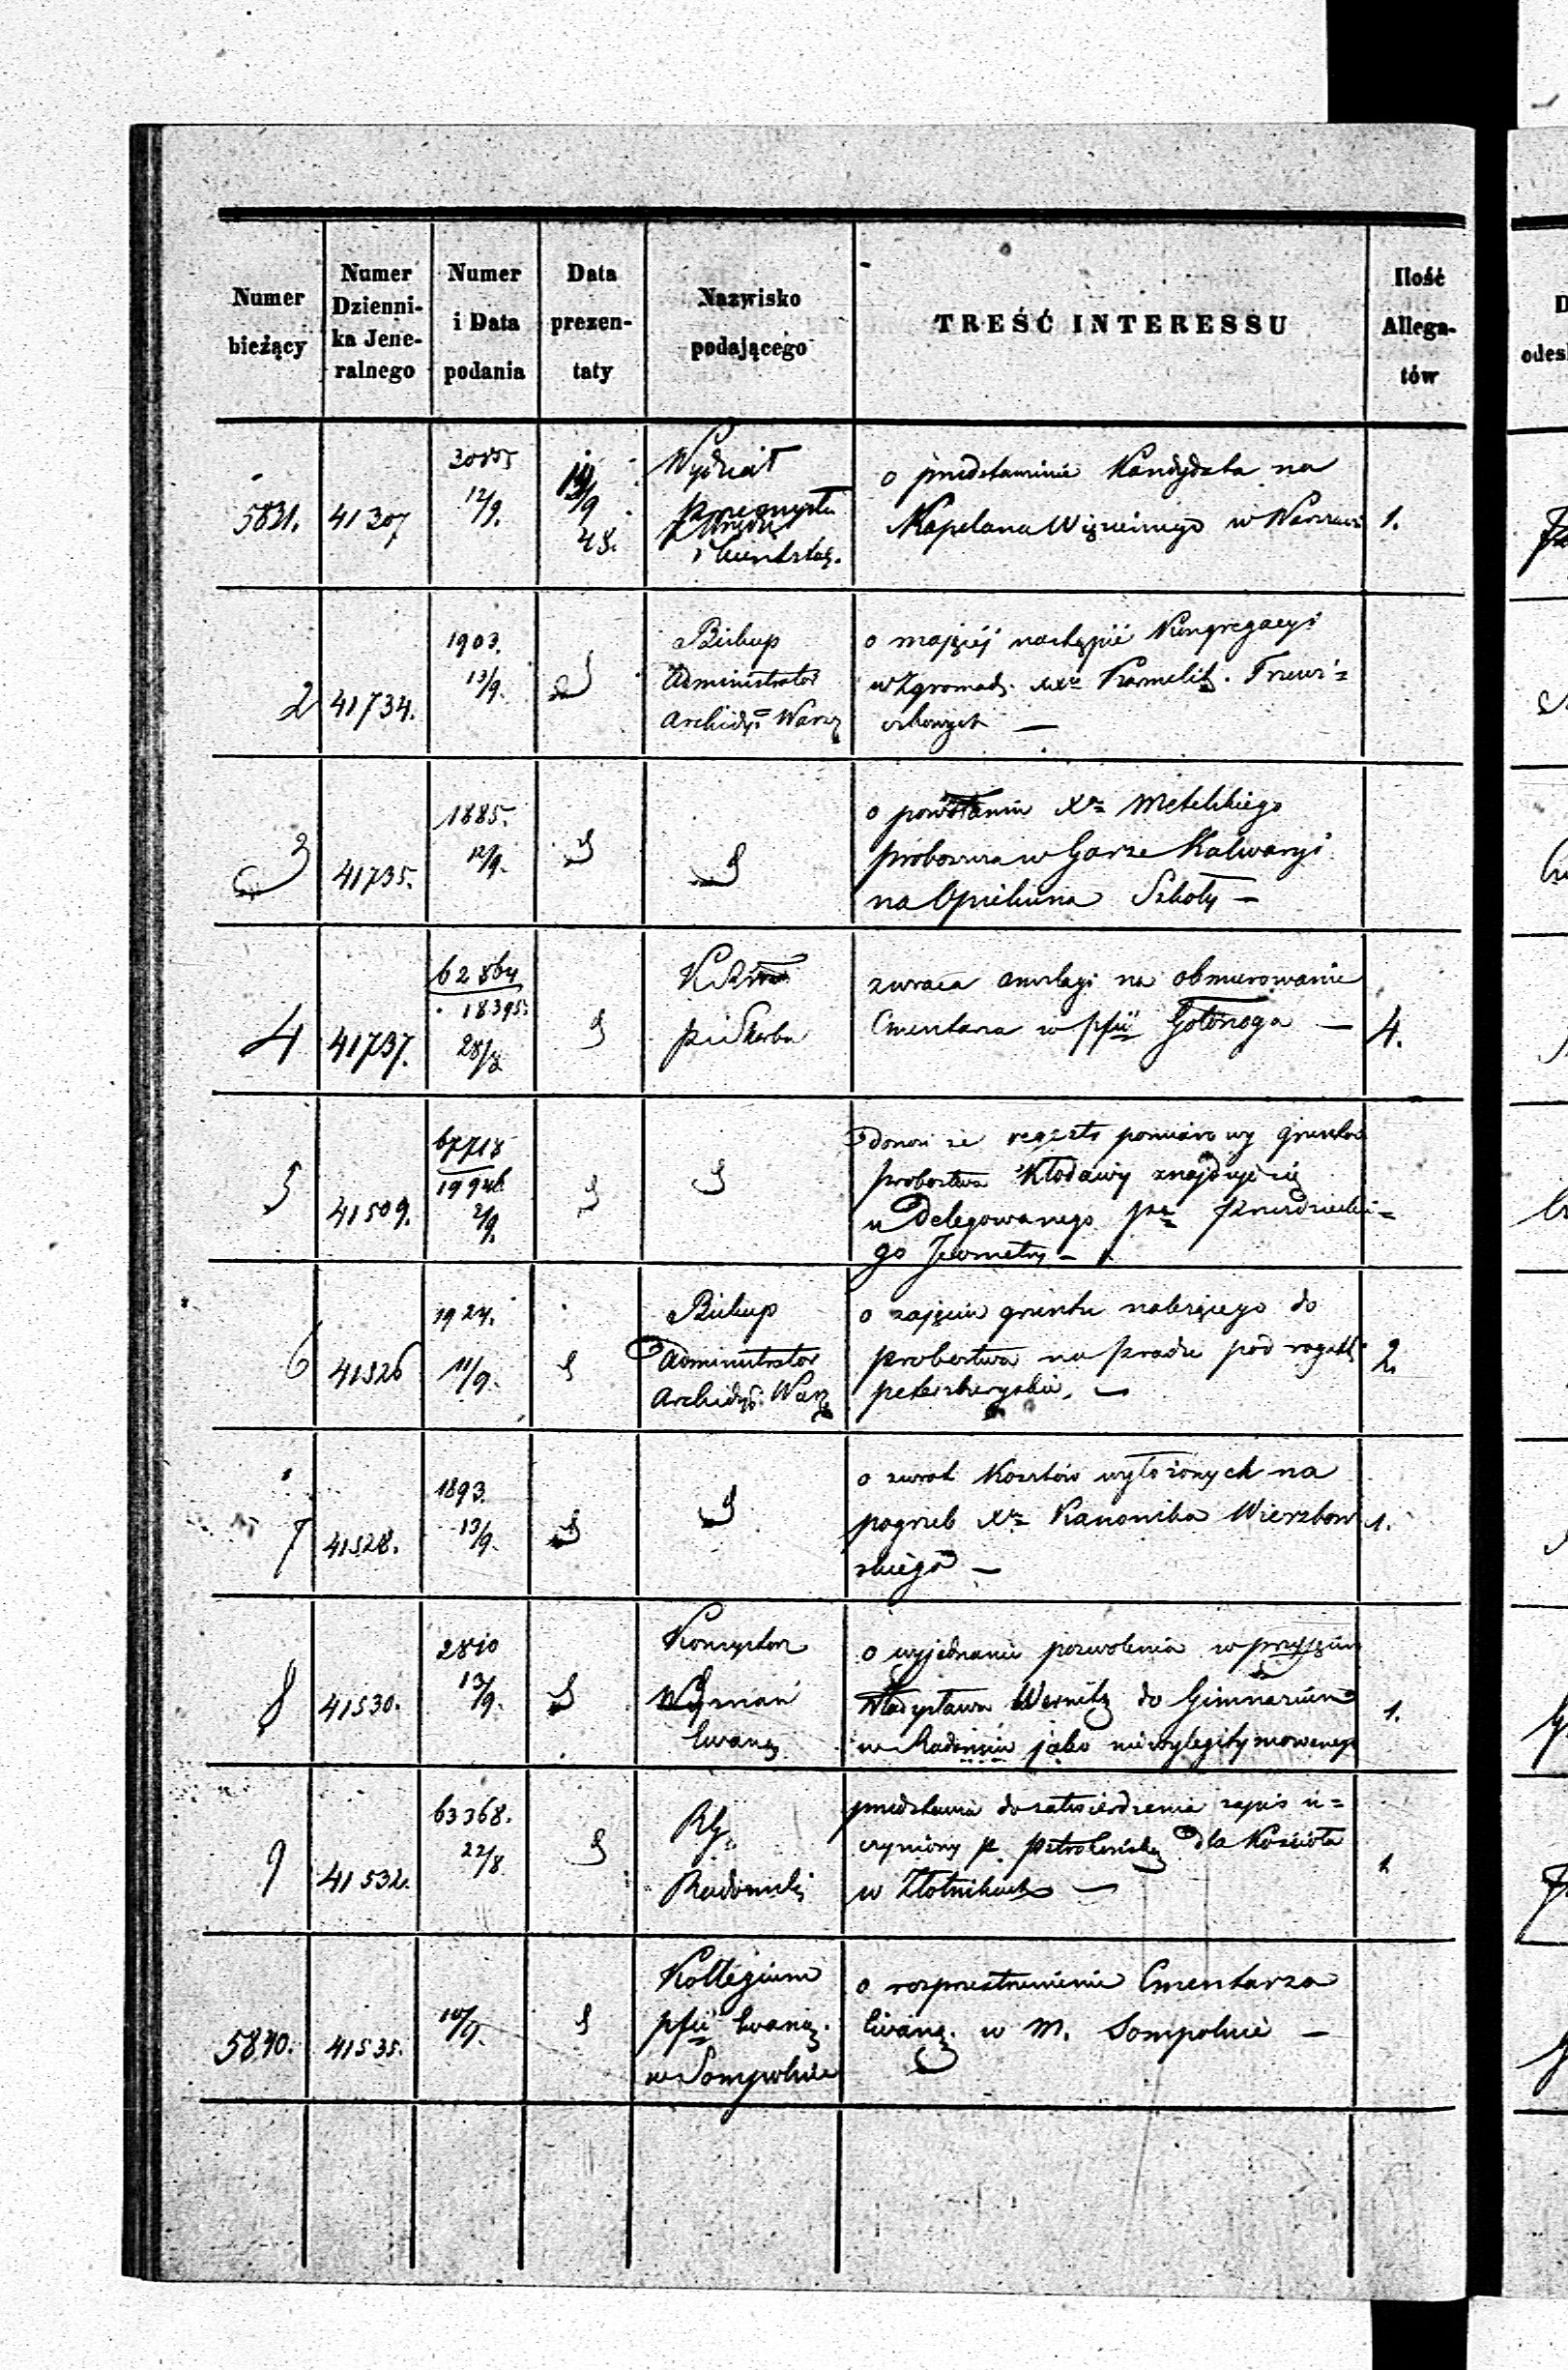 Numer bieżący
Numer Dzienni-ka Jene-ralnego
Numer i Data podania
Data prezen-taty
Nazwisko podającego
TREŚĆ INTERESSU
Ilość Allega-tów
5831. 41307 12/9. 48. Wydział przemysłu
o przedstawienie Kandydata na
Kapelana Więziennego w 1.
2 41734. 1903. 13/9. Biskup
Administrator
Archidy. Warsz
o mającej nastąpić Kongregacyi
w Zgromadz. xxx Karmelit. Trzewi=
czkowych —
3 41735. 1885. 12/9.
o powołaniu Xa Metelskiego
proboszcza w Górze Kalwaryi
na Opiekuna Szkoły —
4 41737. 18395. 28/8 Skarbu
zwraca anszlagi na obmurowanie
Cmentarza w pfii Gołonoga — 4.
5 41509. 67718 2/9.
Donosi że rejestr pomiarowy gruntów
probostwa Kłodawy znajduje się
u Delegowanego
go Jeometry —
6 41526 1924. 11/9. Biskup
Administrator
Archidy. Warsz
o zajęciu gruntu należącego do
probostwa na pradze pod rogatką
petersburgską. — 2.
7 41528. 1893. 13/9.
o zwrot Kosztów wyłożonych na
pogrzeb Xa Kanonika Wierzbow
skiego — 1.
8 41530. 2810 13/9. Konsystorz
Wyznań
Ewang
o wyjednanie pozwolenia w przyjęciu
Władysława Wernitz do Gimnazium
w Radomiu jako niewylegitymowanego 1.
9 41532. 63368. 22/8 RG
Radomski
przedstawia do zatwierdzenia zapis u=
czyniony p. dla Kościoła
w Złotnikach — 1
5840. 41535. 10/9. Kollegium
pfii Ewang.
w Sompolnie
o rozprzestrzenienie Cmentarza
Ewang. w M. Sompolnie —